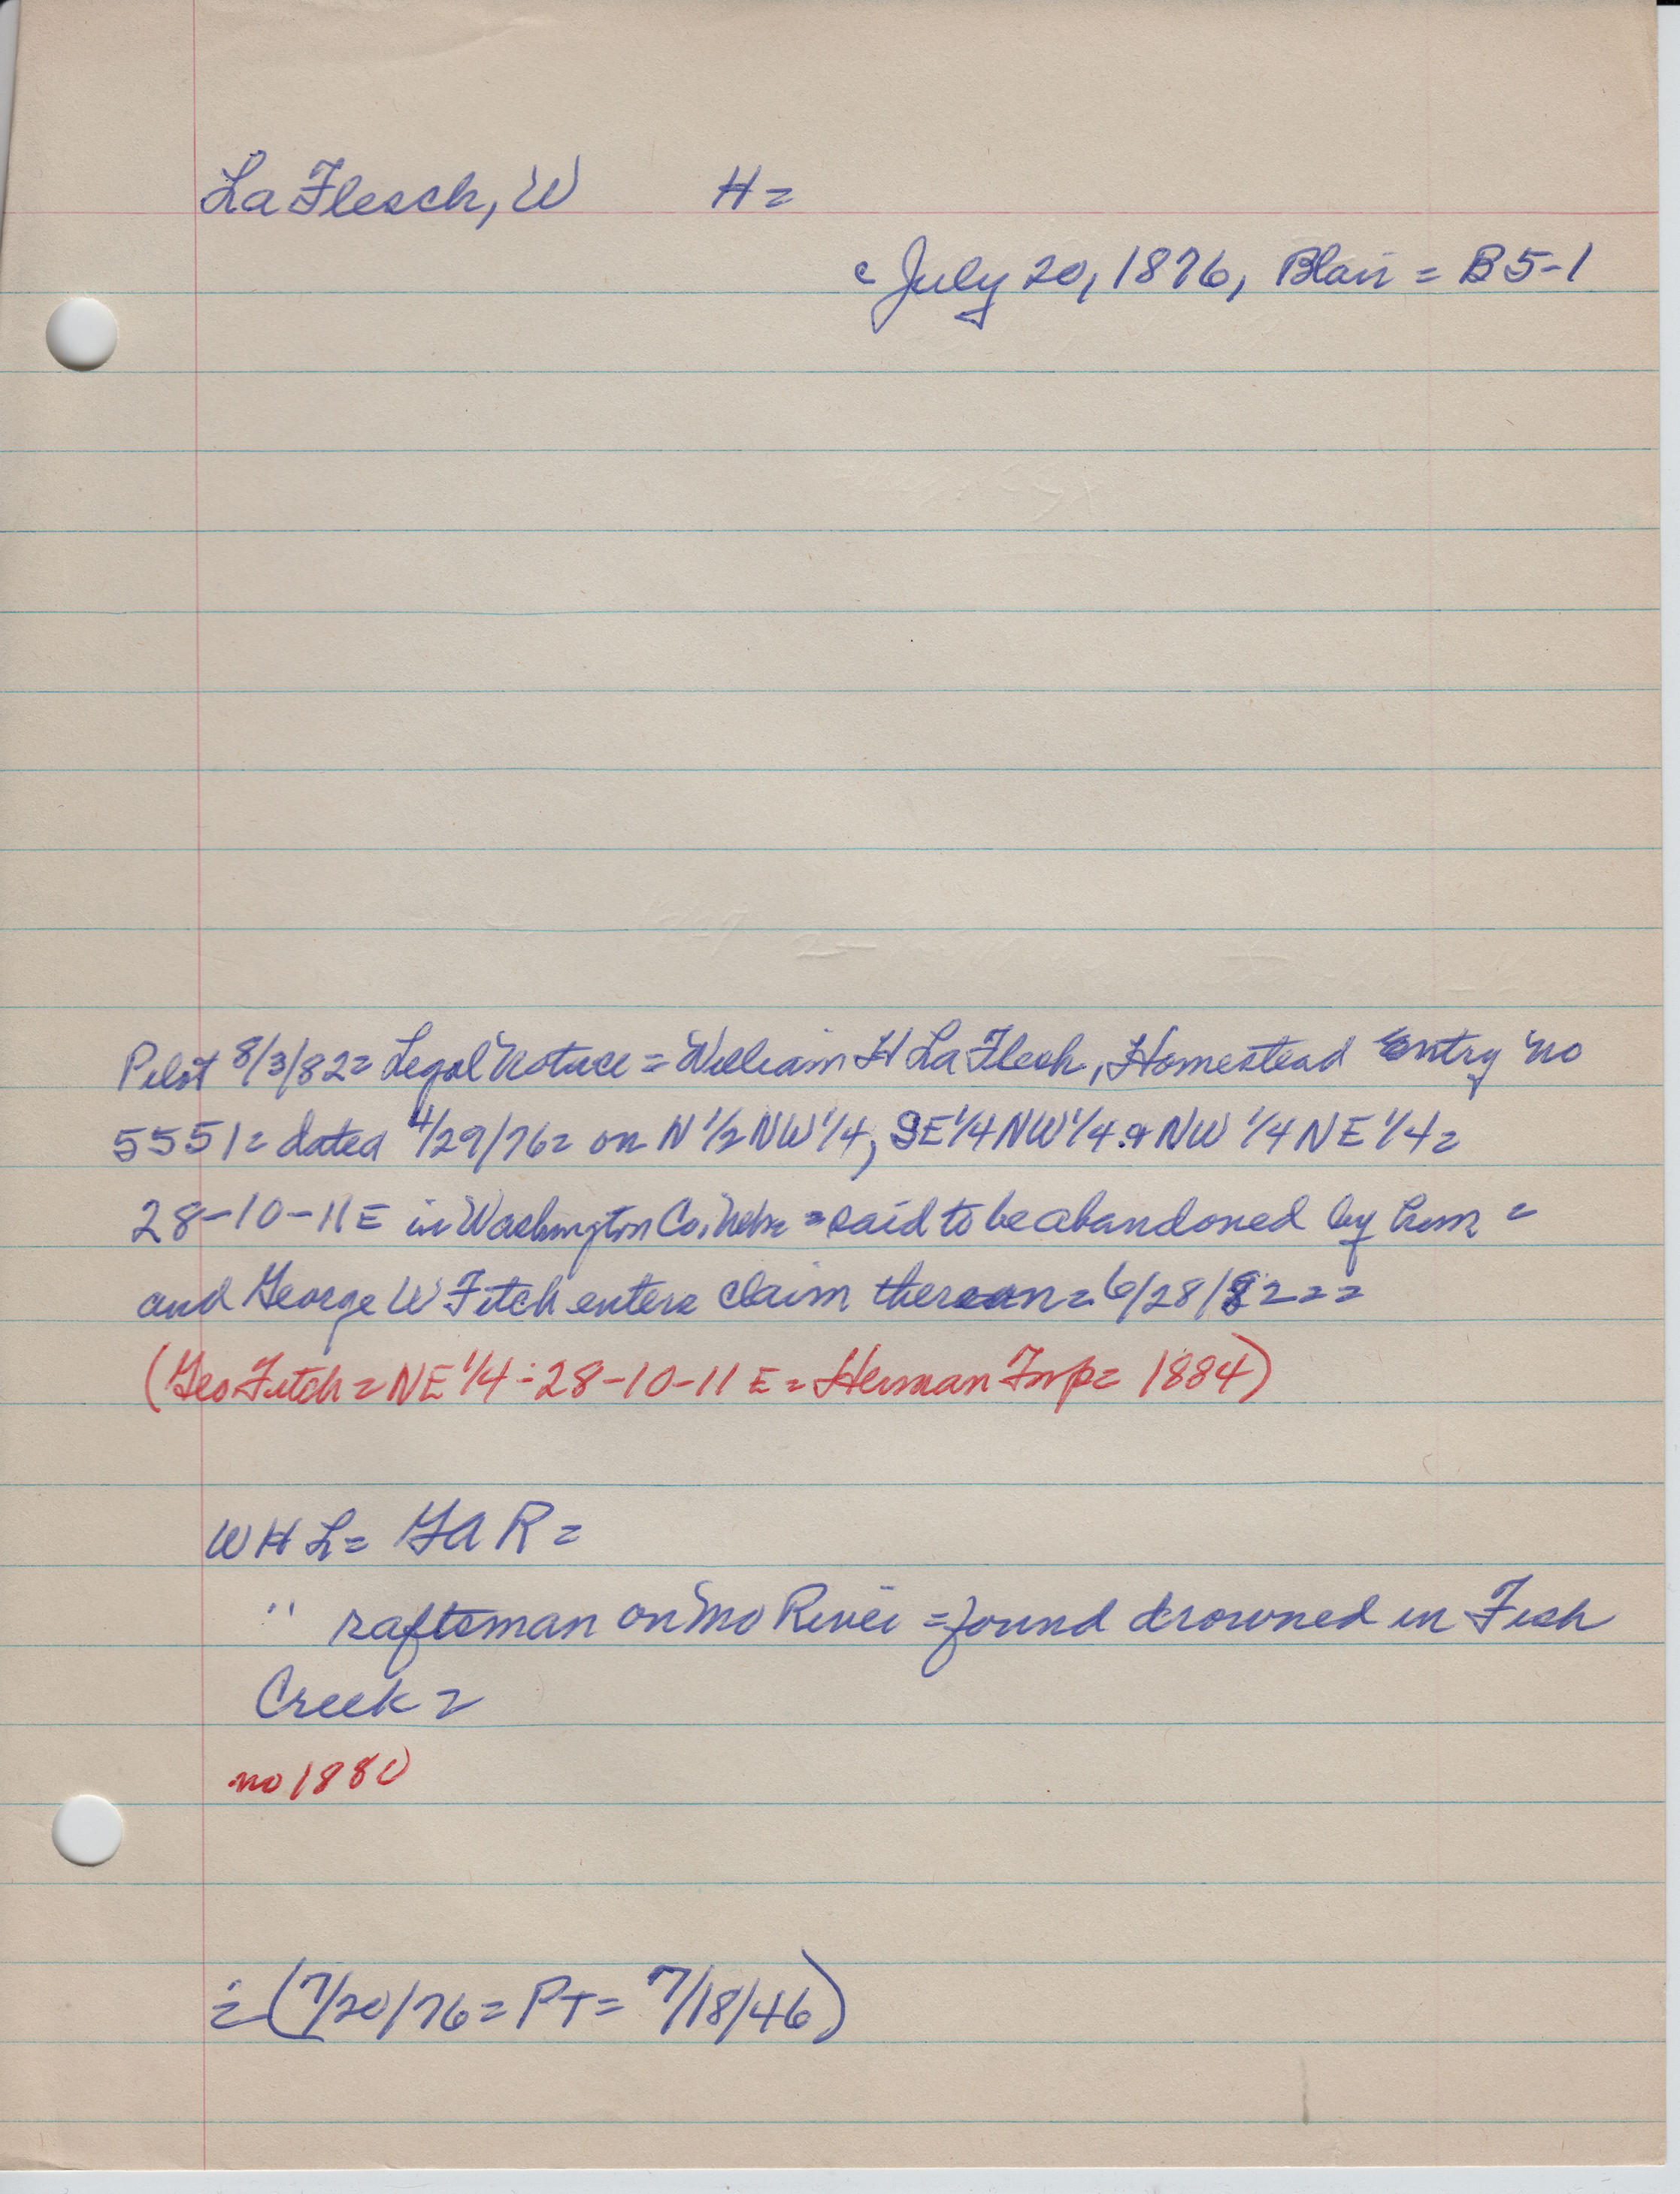 La Flesch, W H=
c July 20, 1876, Blair = B5-1
Pilot 8/3/82= Legal Notice = William H La Flesh, Homestead Entry No
5551= dated 4/29/76= on N 1/2 NW 1/4, SE 1/4 NW 1/4 & NW 1/4 NE 1/4=
28-10-11E in Washington Co, Nebr = said to be abandoned by him =
and George W Fitch enters claim thereon = 6/28/82 = =
(Geo Fitch = NE 1/4 - 28-10-11 E = Herman Twp = 1884)
W H L = G A R =
" raftsman on Mo River = found drowned in Fish
Creek =
no 1880
= (7/20/76 = PT = 7/18/46)